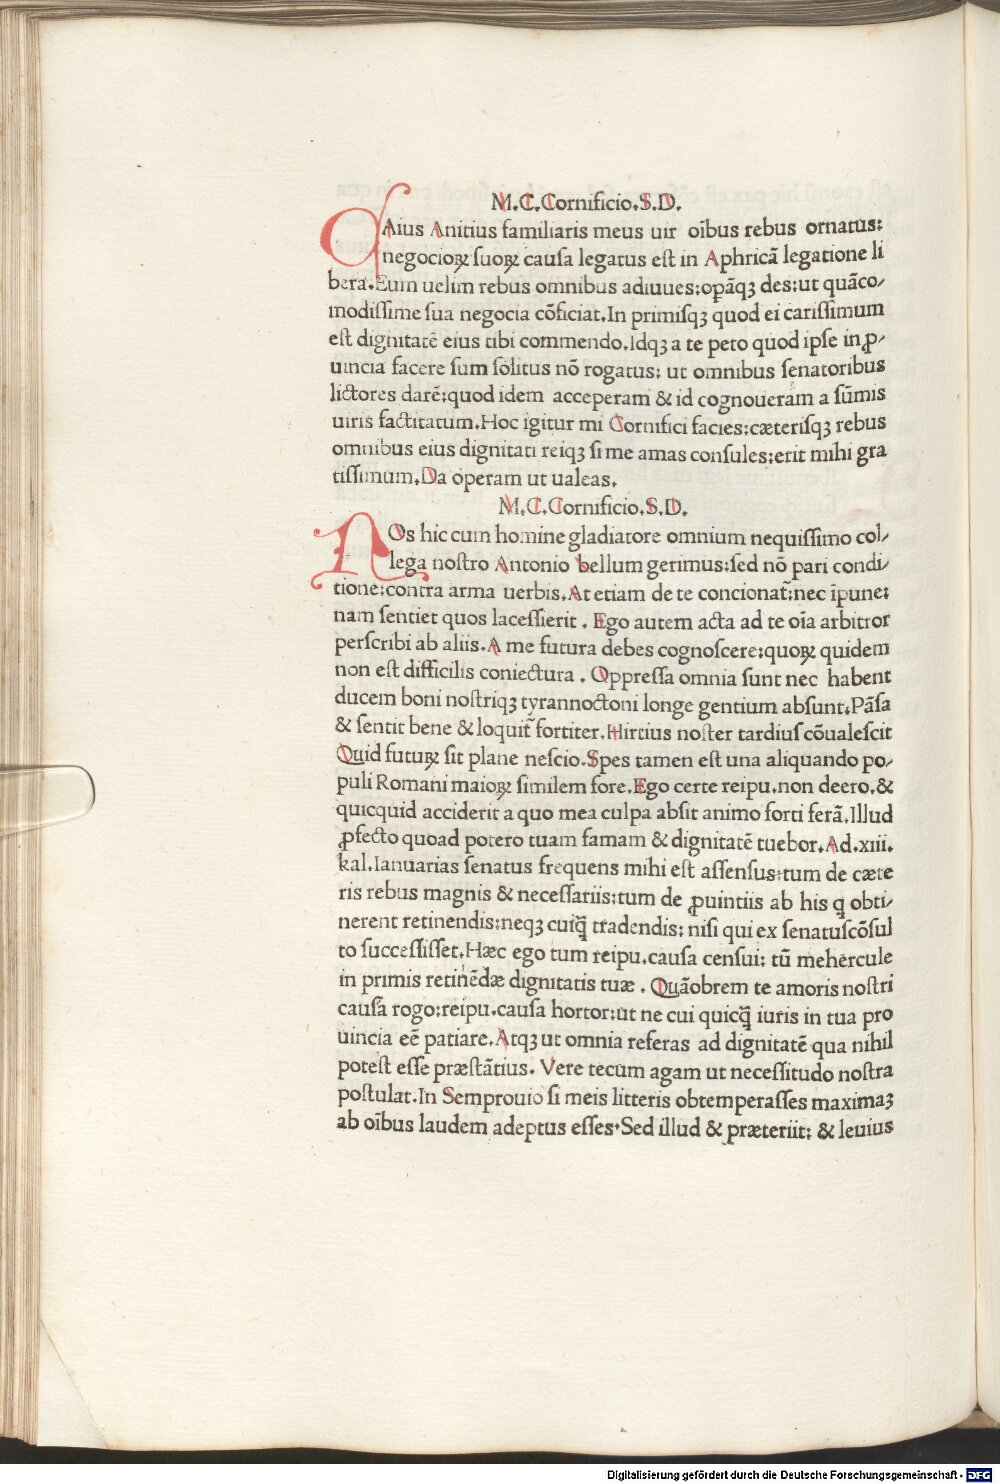 M.C.Cornificio.S.D.
CAius Anitius familiaris meus uir oībus rebus ornatus:
negocioꝝ ſuoꝝ cauſa legatus eſt in Aphricā legatione li
bera.Eum uelim rebus omnibus adiuues:opāqꝫ des:ut quāco/
modiſſime ſua negocia cōficiat.In primiſqꝫ quod ei cariſſimum
eſt dignitatē eius tibi commendo.Idqꝫ a te peto quod ipſe in ꝓ/
uincia facere ſum ſolitus nō rogatus: ut omnibus ſenatoribus
lictores darē:quod idem acceperam & id cognoueram a ſūmis
uiris factitatum.Hoc igitur mi Cornifici facies:cæteriſqꝫ rebus
omnibus eius dignitati reiqꝫ ſi me amas conſules:erit mihi gra
tiſſimum.Da operam ut ualeas.
M.C.Cornificio.S.D.
NOs hic cum homine gladiatore omnium nequiſſimo col/
lega noſtro Antonio bellum gerimus:ſed nō pari condi/
tione:contra arma uerbis.At etiam de te concionat̄:nec īpune:
nam ſentiet quos laceſſierit . Ego autem acta ad te oīa arbitror
perſcribi ab aliis.A me futura debes cognoſcere:quoꝝ quidem
non eſt difficilis coniectura . Oppreſſa omnia ſunt nec habent
ducem boni noſtriqꝫ tyrannoctoni longe gentium abſunt.Pāſa
& ſentit bene & loquit̄ fortiter.Hirtius noſter tardiuſ cōualeſcit
Quid futuꝝ ſit plane neſcio.Spes tamen eſt una aliquando po/
puli Romani maioꝝ ſimilem fore.Ego certe reipu.non deero.&
quicquid acciderit a quo mea culpa abſit animo forti ferā.Illud
ꝓfecto quoad potero tuam famam & dignitatē tuebor.Ad.xiii.
kal.Ianuarias ſenatus frequens mihi eſt aſſenſus:tum de cæte
ris rebus magnis & neceſſariis:tum de ꝓuintiis ab his q̄ obti/
nerent retinendis:neqꝫ cuiq̄ tradendis: niſi qui ex ſenatuſcōſul
to ſucceſſiſſet.Hæc ego tum reipu.cauſa cenſui: tū mehercule
in primis retinēdæ dignitatis tuæ . Quāobrem te amoris noſtri
cauſa rogo:reipu.cauſa hortor:ut ne cui quicq̄ iuris in tua pro
uincia eē patiare.Atqꝫ ut omnia referas ad dignitatē qua nihil
poteſt eſſe præſtātius. Vere tecum agam ut neceſſitudo noſtra
poſtulat.In Semprouio ſi meis litteris obtemperaſſes maximaꝫ
ab oībus laudem adeptus eſſes.Sed illud & præteriit: & leuius
Digitalisierung gefördert durch die Deutsche Forschungsgemeinschaft - DFG